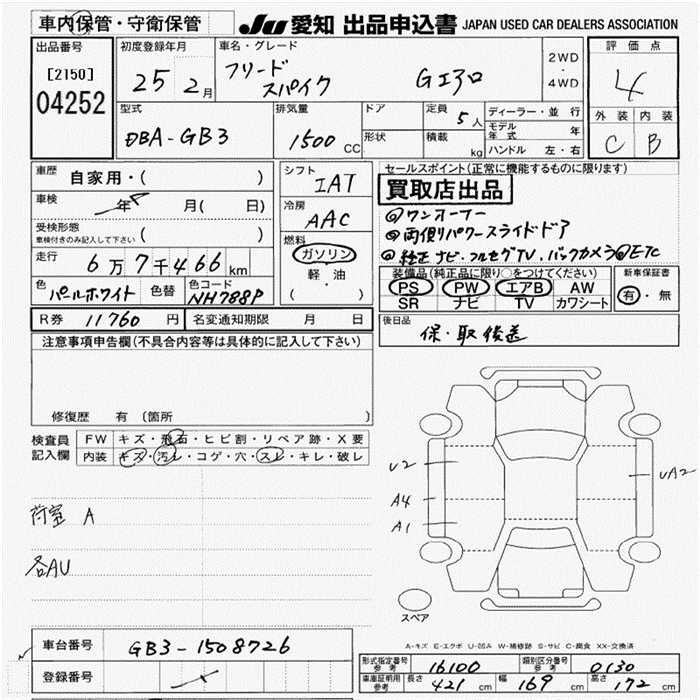 車内保管・守衛保管
JU 愛知 出品申込書 JAPAN USED CAR DEALERS ASSOCIATION
出品番号
[2150]
04252
初度登録年月
25 2月
車名・グレード
フリード
スパイク
Gエアロ
2WD
・
4WD
評価点
4
外装 内装
C B
型式
DBA-GB3
排気量
1500 CC
ドア
形状
定員
5人
積載
kg
ディーラー・並行
モデル年式 年
ハンドル 左・右
車歴
自家用・( )
車検
年 月( 日)
受検形態
車検付きのみ記入して下さい ( )
走行
6万7千466km
色
パールホワイト
色替
色コード
NH788P
シフト
IAT
冷房
AAC
燃料
ガソリン
軽・油
( )
セールスポイント(正常に機能するものに限ります)
買取店出品
◎ワンオーナー
◎両側パワースライドドア
◎純正ナビ・フルセグTV・バックカメラ◎ETC
装備品(純正品に限り○をつけてください)
PS PW エアB AW
SR ナビ TV カワシート
新車保証書
有・無
R券 11760円 名変通知期限 月 日
後日品
保・取後送
注意事項申告欄(不具合内容等は具体的に記入して下さい)
修復歴 有〔箇所 〕
検査員記入欄
FW キズ・飛石・ヒビ割・リペア跡・X要
内装 キズ・汚レ・コゲ・穴・スレ・キレ・破レ
荷室 A
各AU
U2
A4
A1
UA2
スペア
A-キズ E-エクボ U-凹み W-補修跡 S-サビ C-腐食 XX-交換済
車台番号
GB3-1508726
登録番号
型式指定番号
参考
16100
類別区分番号
参考
0130
車庫証明用
参考
長さ 421cm 幅 169cm 高さ 172cm